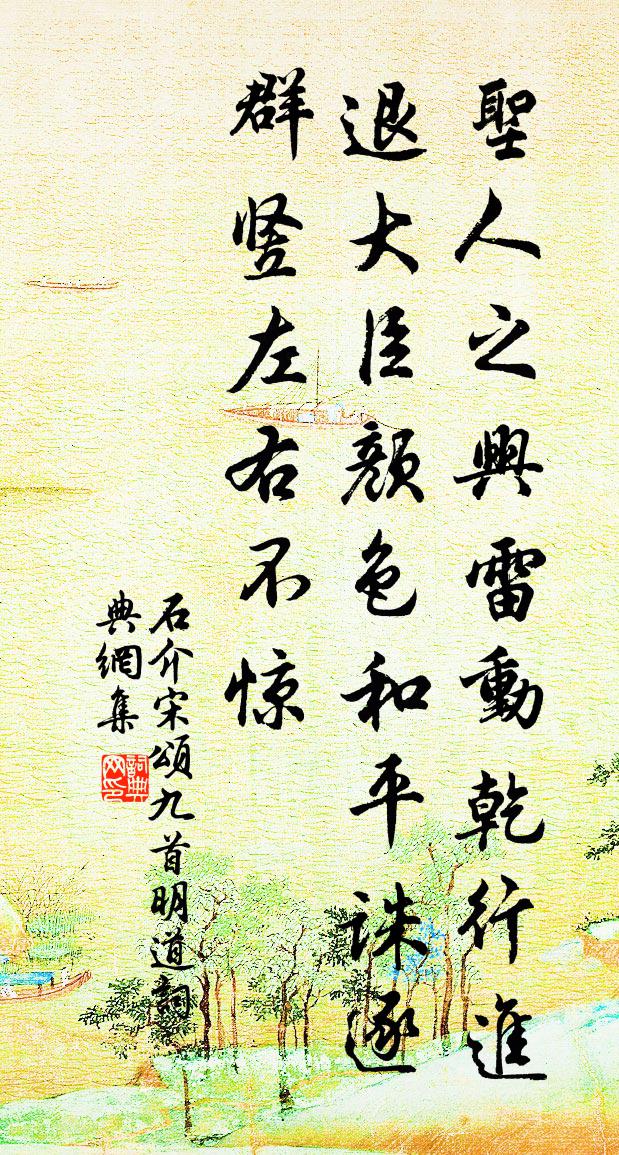 聖人之興雷動乾行進
退大臣顏色和平誅逐
群竖左右不惊
石介宋頌九首明道詞
典網集
詞典
网印